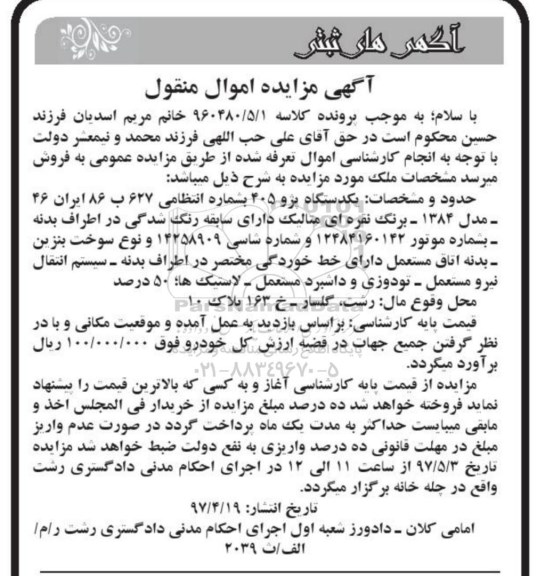 آگهی های ثبتی
آگهی مزایده اموال منقول
با سلام؛ به موجب پرونده کلاسه ۹۶۰۴۸۰/۵/۱ خانم مریم اسدیان فرزند
حسین محکوم است در حق آقای علی حب اللهی فرزند محمد و نیمعشر دولت
با توجه به انجام کارشناسی اموال تعرفه شده از طریق مزایده عمومی به فروش
میرسد مشخصات ملک مورد مزایده به شرح ذیل میباشد:
حدود و مشخصات: یکدستگاه پژو ۴۰۵ بشماره انتظامی ۶۲۷ ب ۸۶ ایران ۴۶
ـ مدل ۱۳۸۴ ـ برنگ نقره ای متالیک دارای سابقه رنگ شدگی در اطراف بدنه
ـ بشماره موتور ۱۲۴۸۴۱۶۰۱۴۲ و شماره شاسی ۱۴۲۵۸۹۰۹ و نوع سوخت بنزین
ـ بدنه اتاق مستعمل دارای خط خوردگی مختصر در اطراف بدنه ـ سیستم انتقال
نیرو مستعمل ـ تودوزی و داشبرد مستعمل ـ لاستیک ها: ۵۰ درصد
محل وقوع مال: رشت، گلسار ـ خ ۱۶۳ پلاک ۱۰
قیمت پایه کارشناسی: براساس بازدید به عمل آمده و موقعیت مکانی و با در
نظر گرفتن جمیع جهات در قضیه ارزش کل خودرو فوق ۱۰۰/۰۰۰/۰۰۰ ریال
برآورد میگردد.
پایگاه اطلاع رسانی مناقصه و مزایده
ParsNamadData
۰۲۱-۸۸۳۴۹۶۷۰-۵
مزایده از قیمت پایه کارشناسی آغاز و به کسی که بالاترین قیمت را پیشنهاد
نماید فروخته خواهد شد ده درصد مبلغ مزایده از خریدار فی المجلس اخذ و
مابقی میبایست حداکثر به مدت یک ماه پرداخت گردد در صورت عدم واریز
مبلغ در مهلت قانونی ده درصد واریزی به نفع دولت ضبط خواهد شد مزایده
تاریخ ۹۷/۵/۳ از ساعت ۱۱ الی ۱۲ در اجرای احکام مدنی دادگستری رشت
واقع در چله خانه برگزار میگردد.
تاریخ انتشار: ۹۷/۴/۱۹
امامی کلان ـ دادورز شعبه اول اجرای احکام مدنی دادگستری رشت ر/م/
الف/ث ۲۰۳۹